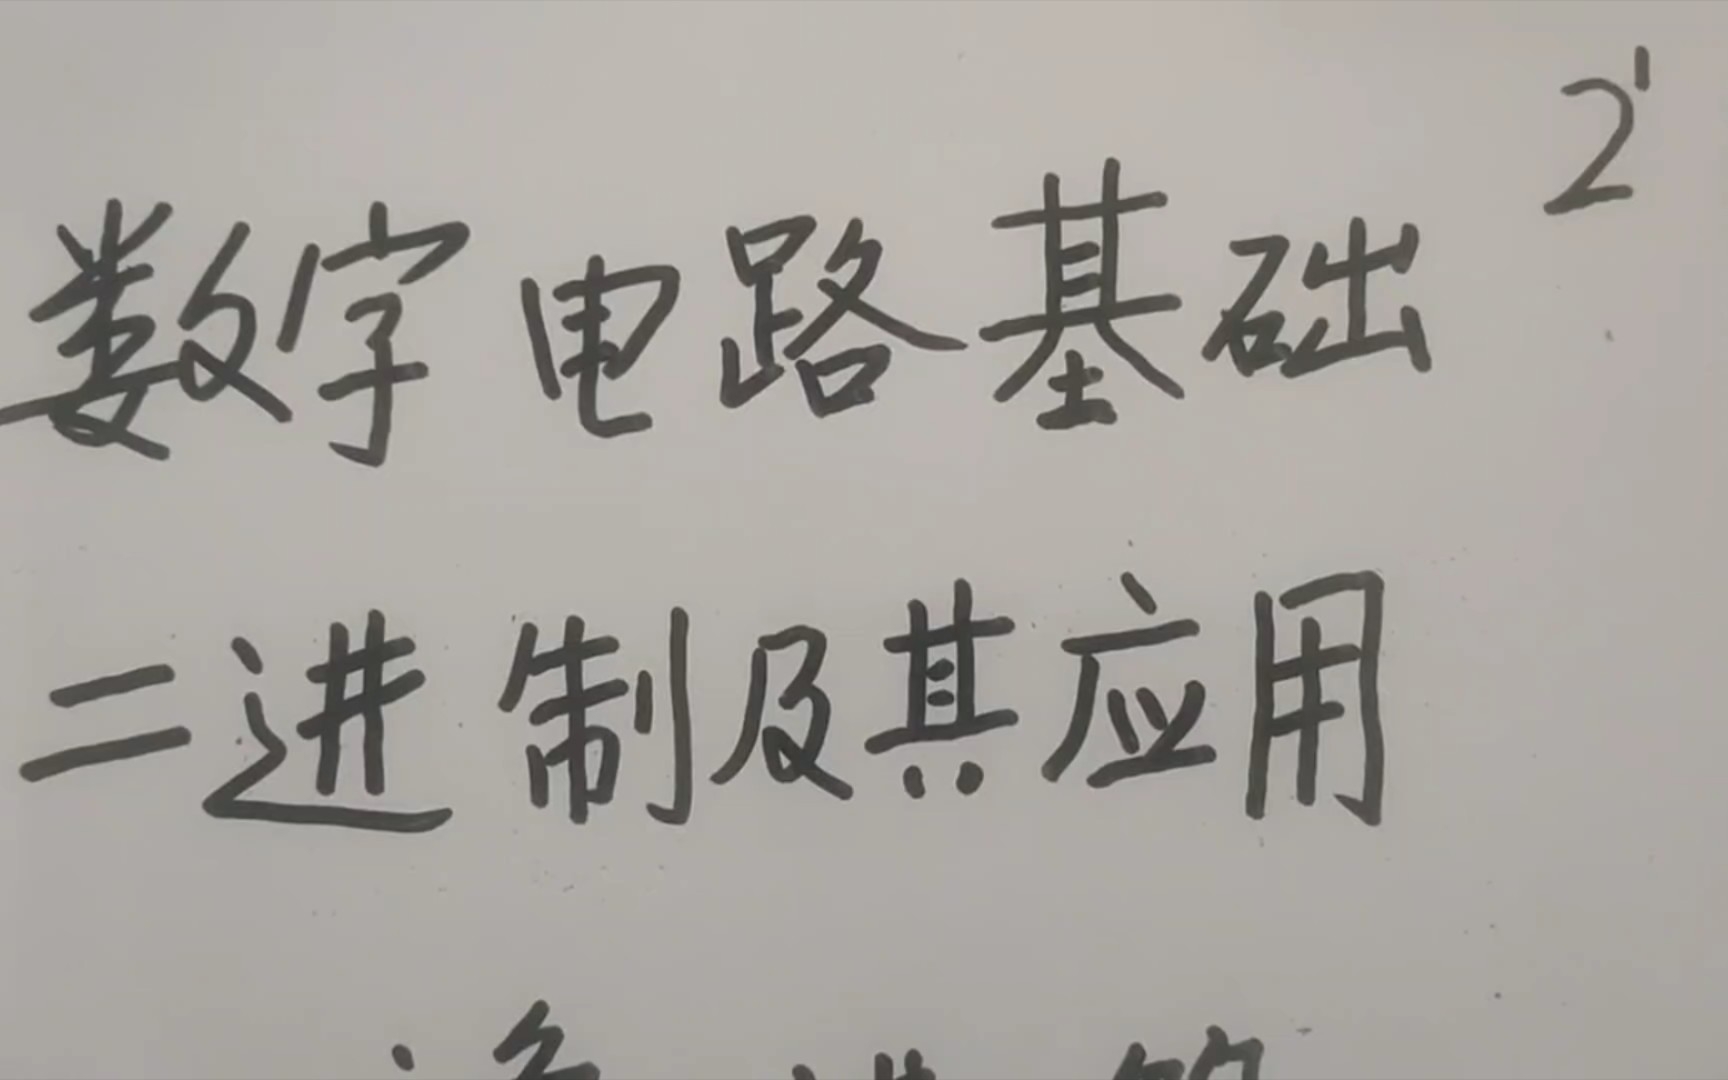 2'
数字电路基础
二进制及其应用